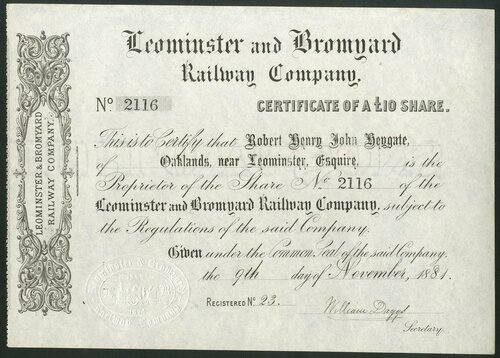 Leominster and Bromyard
Railway Company.
No 2116 CERTIFICATE OF A £10 SHARE.
This is to Certify that Robert Henry John Heygate,
of Oaklands, near Leominster, Esquire, is the
Proprietor of the Share No 2116 of the
Leominster and Bromyard Railway Company, subject to
the Regulations of the said Company.
Given under the Common Seal of the said Company,
the 9th day of November, 1881.
REGISTERED No 23.
William
Secretary.
LEOMINSTER & BROMYARD
RAILWAY COMPANY.